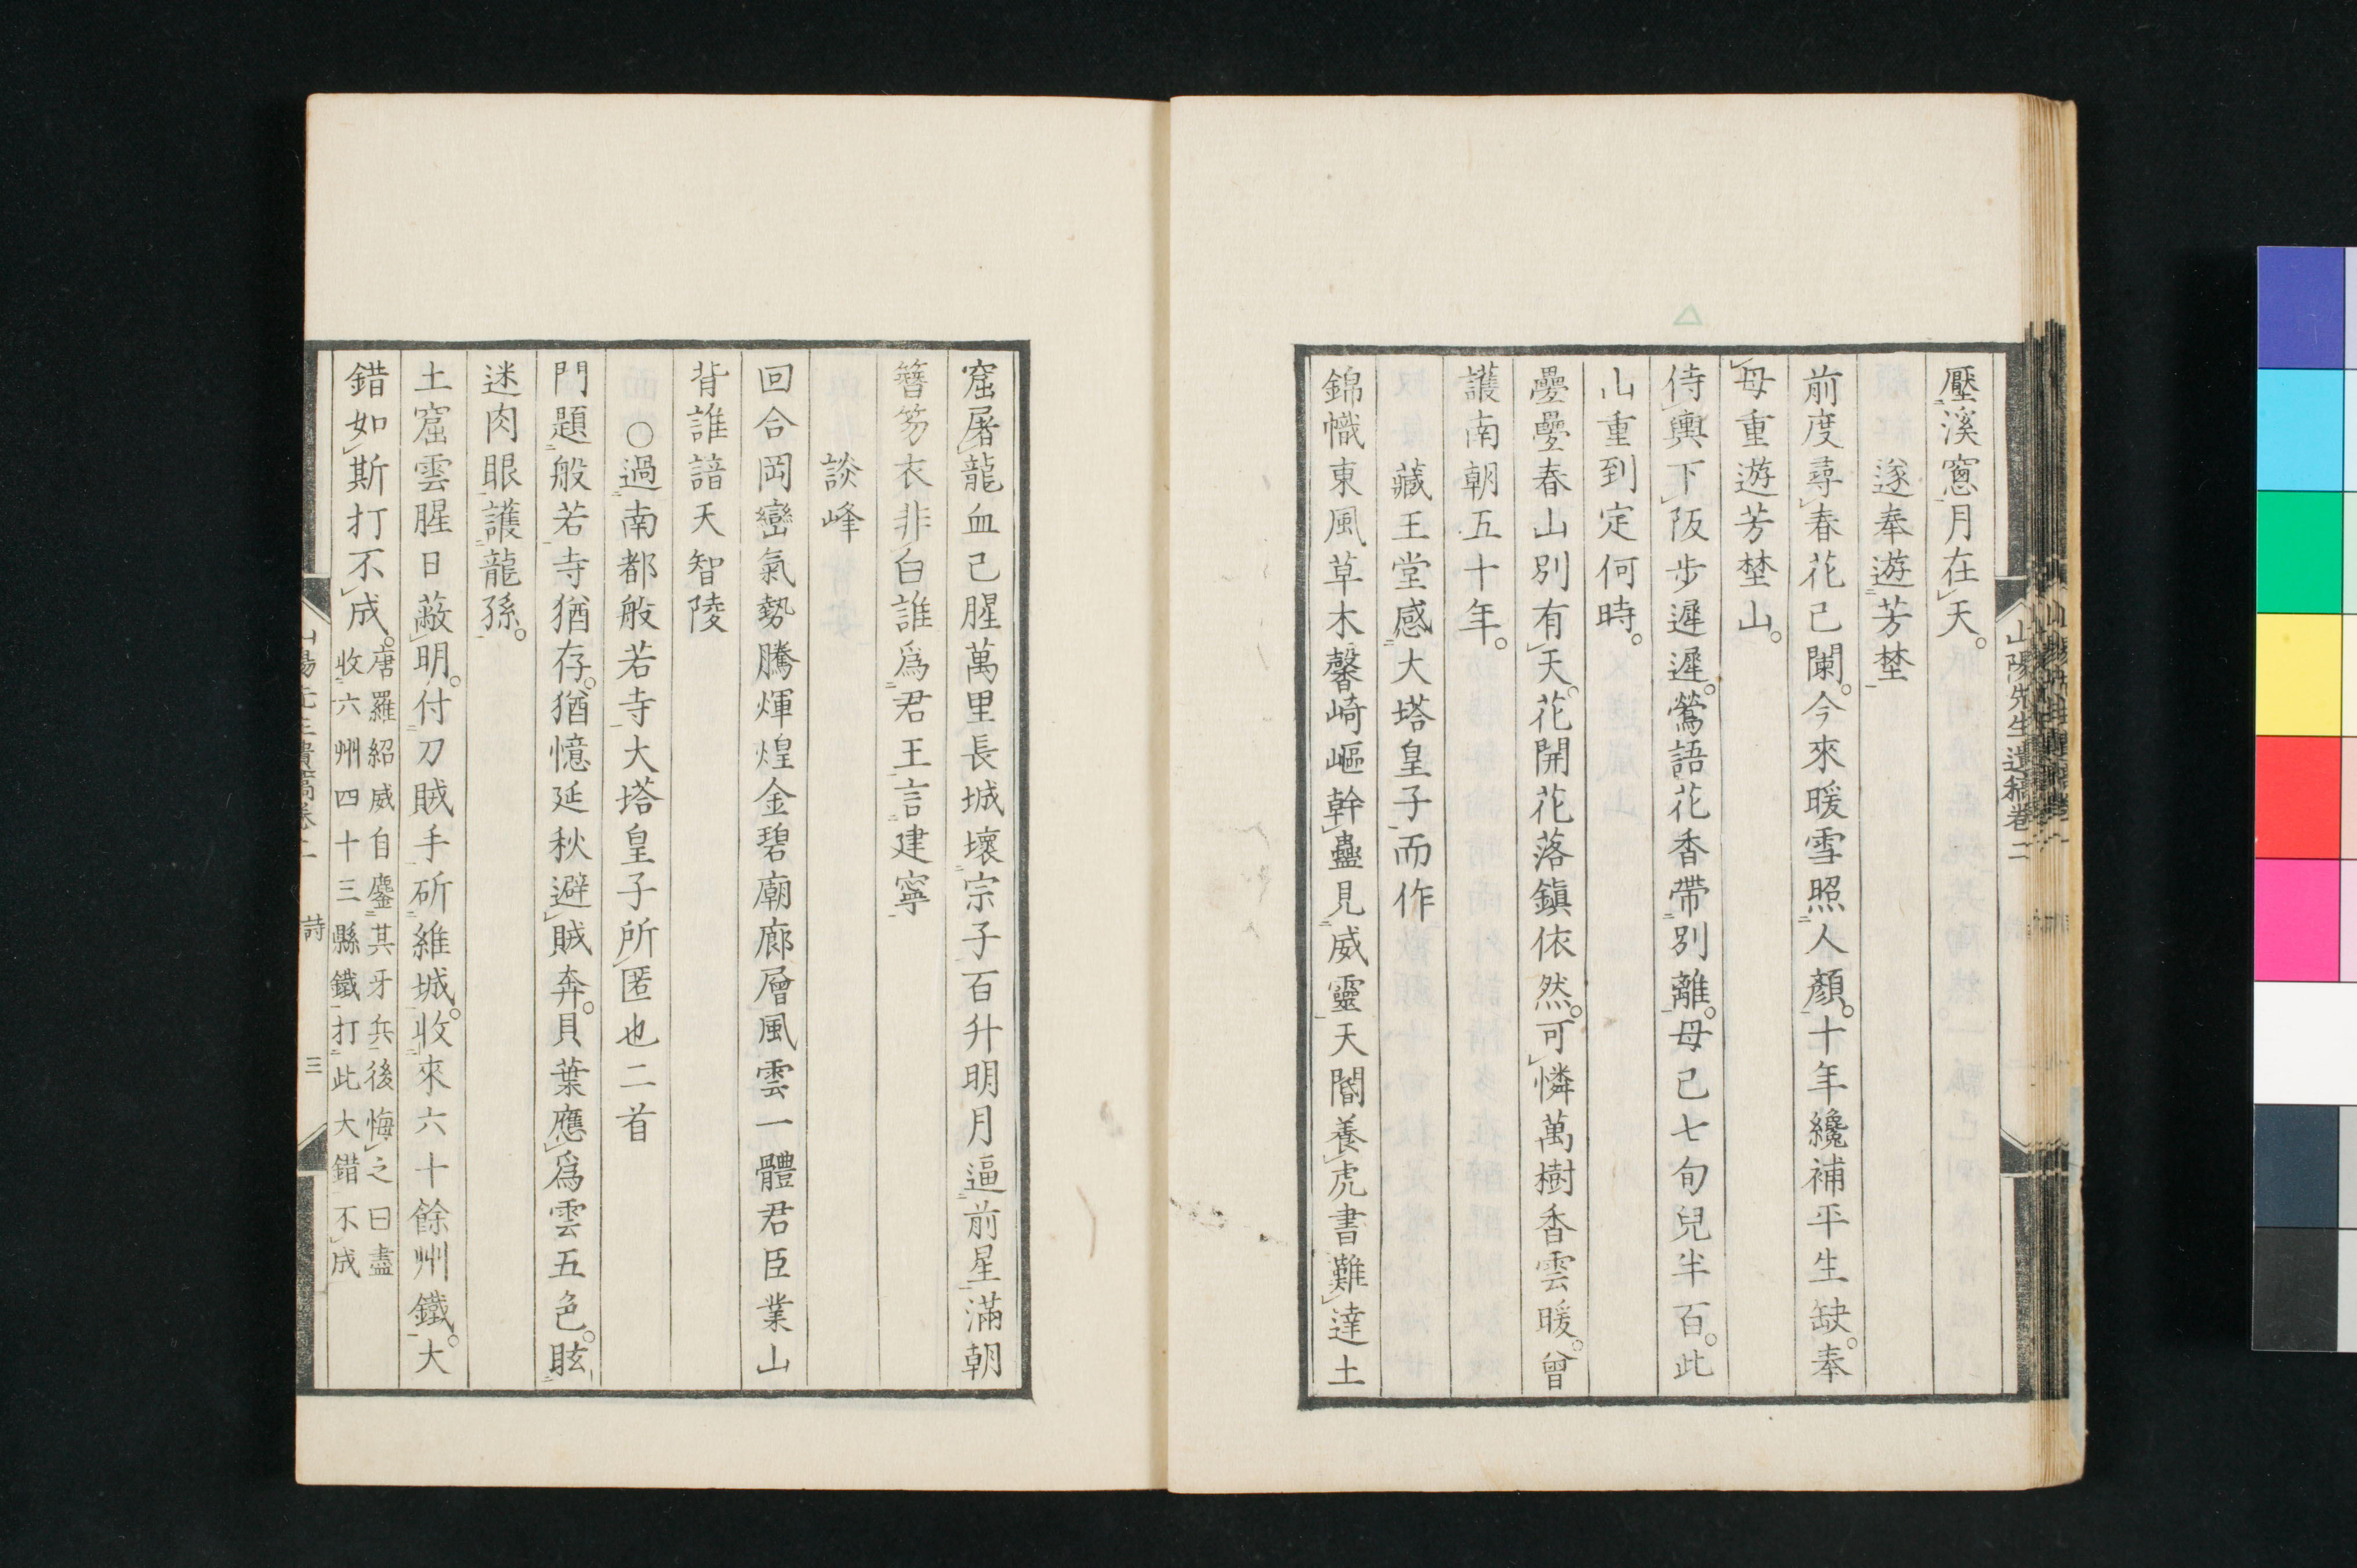 壓溪窻月在天。
遂奉遊芳埜
前度尋春花已闌。今來暖雪照人顏。十年纔補平生缺。奉
母重遊芳埜山。
侍輿下阪步遲遲。鶯語花香帶別離。母已七旬兒半百。此
山重到定何時。
疊疊春山別有天。花開花落鎮依然。可憐萬樹香雲暖。曾
護南朝五十年。
藏王堂感大塔皇子而作
錦幟東風草木馨崎嶇幹蠱見威靈天閽養虎書難達土
山陽先生遺稿卷二
窟屠龍血已腥萬里長城壞宗子百升明月逼前星滿朝
簪笏衣非白誰爲君王言建寧
談峰
回合岡巒氣勢騰輝煌金碧廟廊層風雲一體君臣業山
背誰諳天智陵
○過南都般若寺大塔皇子所匿也二首
門題般若寺猶存。猶憶延秋避賊奔。貝葉應爲雲五色。眩
迷肉眼護龍孫。
土窟雲腥日蔽明。付刀賊手斫維城。收來六十餘州鐵。大
錯如斯打不成。
唐羅紹威自鏖其牙兵後悔之曰盡
收六州四十三縣鐵打此大錯不成
詩
三